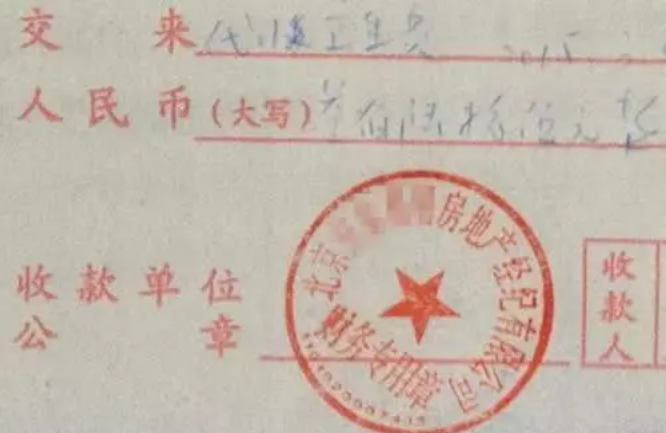 交来 代 卫生费 2015.
人民币(大写) 佰陆拾伍元
北京 房地产经纪有限公司
财务专用章
收款单位
公章
收款人